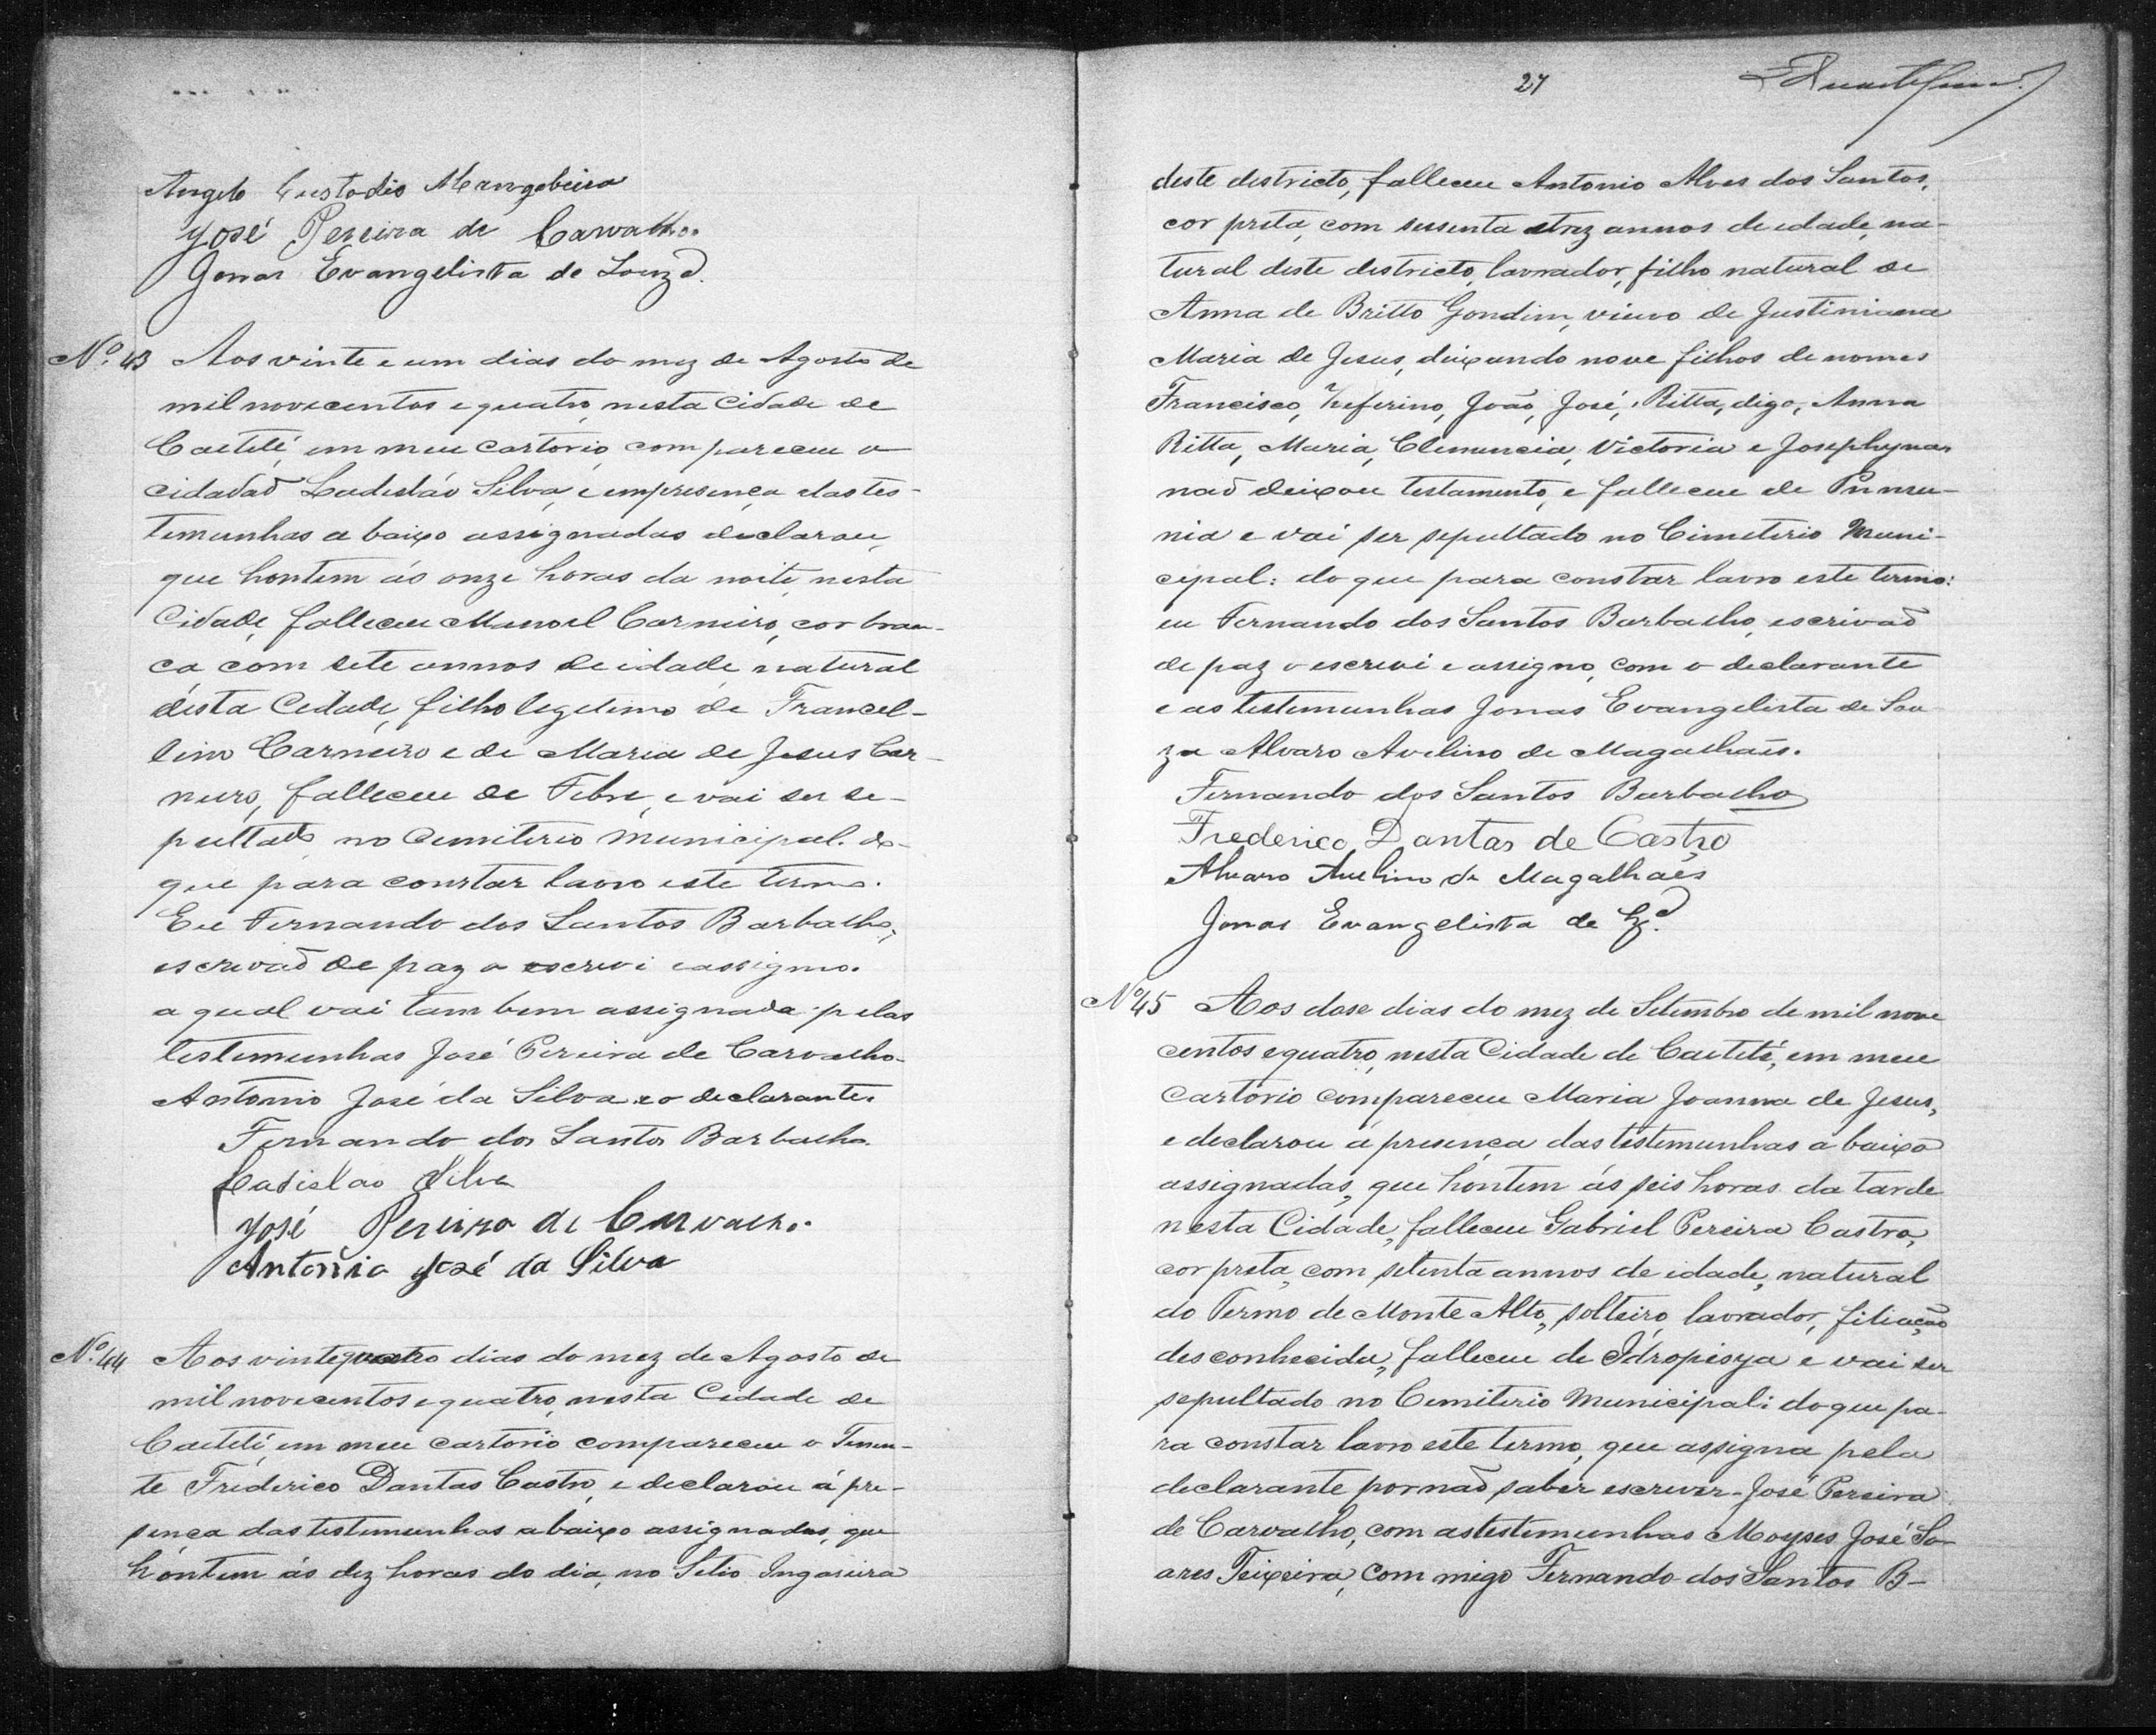 Angelo Custodio Mangabeira
José Pereira de Carvalho.
Jonas Evangelista de Souza.
Nº. 43 Aos vinte e um dias do mez de Agosto de
mil novecentos e quatro, nesta Cidade de
Caetité, em meu cartorio, compareceu o
cidadaõ Ladisláo Silva, e em presença das tes-
temunhas a baixo assignadas declarou,
que hontem ás onze horas da noite, nesta
Cidade, falleceu Manoel Carneiro, cor bran-
ca, com sete annos de idade, natural
désta Cidade, filho legitimo de Francel-
lino Carneiro e de Maria de Jesus Car-
neiro, falleceu de Febre, e vai ser se-
pultado no Cemiterio Municipal. do
que para constar lavro este termo.
Eu Fernando dos Santos Barbalho,
escrivaõ de paz o escrevi e assigno.
a qual vai tam bem assignada pelas
testemunhas José Pereira de Carvalho
Antonio José da Silva e o declarante.
Fernando dos Santos Barbalho.
Ladislao Silva
José Pereira de Carvalho.
Antonio José da Silva
Nº. 44 Aos vinte quatro dias do mez de Agosto de
mil novecentos e quatro, nesta Cidade de
Caetité, em meu cartorio compareceu o Tenen-
te Frederico Dantas Castro, e declarou á pre-
sença das testemunhas abaixo assignadas, que
hontem ás dez horas do dia, no Sitio Ingaseira
27
deste districto, falleceu Antonio Alves dos Santos,
cor preta, com sessenta e trez annos de edade, na-
tural deste districto, lavrador, filho natural de
Anna de Britto Gondim, viuvo de Justiniana
Maria de Jesus, deixando nove filhos de nomes
Francisco, Zeferino, João, José, Ritta, digo, Anna
Ritta, Maria, Clemencia, Victoria e Josephyna
naõ deixou testamento, e falleceu de Pneumo-
nia e vai ser sepultado no Cimeterio Muni-
cipal: do que para constar lavro este termo:
eu Fernando dos Santos Barbalho, escrivaõ
de paz o escrevi e assigno, com o declarante
e as testemunhas Jonas Evangelista de Sou
za Alvaro Avelino de Magalhaẽs.
Fernando dos Santos Barbalho
Frederico Dantas de Castro
Alvaro Avelino de Magalhaẽs
Jonas Evangelista de
Nº 45 Aos dose dias do mez de Setembro de mil nove
centos e quatro, nesta Cidade de Caetité, em meu
cartorio compareceu Maria Joanna de Jesus,
e declarou á presença das testemunhas a baixo
assignadas, que hontem ás seis horas da tarde
nesta Cidade, falleceu Gabriel Pereira Castro,
cor preta, com setenta annos de idade, natural
do Termo de Monte Alto, solteiro, lavrador, filiação
desconhecida, falleceu de Idropisya e vai ser
sepultado no Cemiterio Municipal: do que pa-
ra constar lavro este termo, que assigna pela
declarante por naõ saber escrever José Pereira
de Carvalho, com as testemunhas Moyses José So-
ares Teixeira, com migo Fernando dos Santos B-